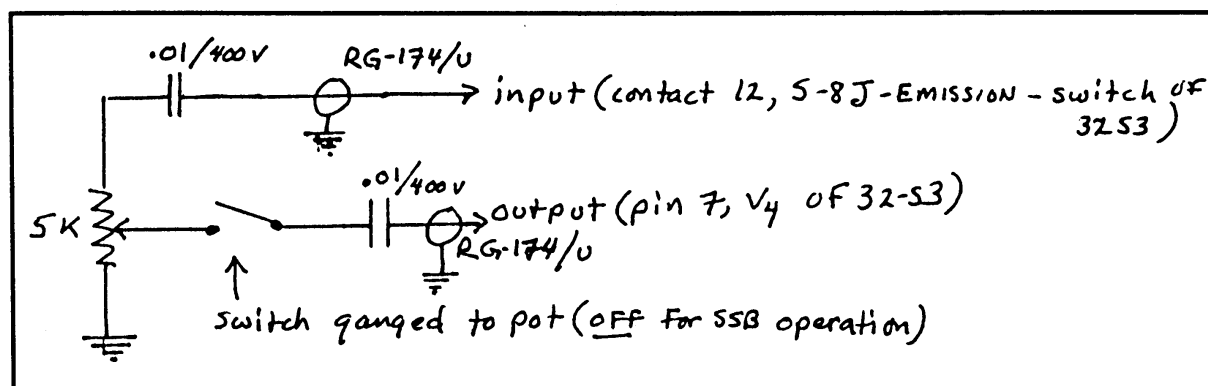 .01/400V
RG-174/U
input (contact 12, S-8J-EMISSION - switch of
32S3)
.01/400V
output (pin 7, V4 of 32-S3)
5K
RG-174/U
switch ganged to pot (OFF for SSB operation)